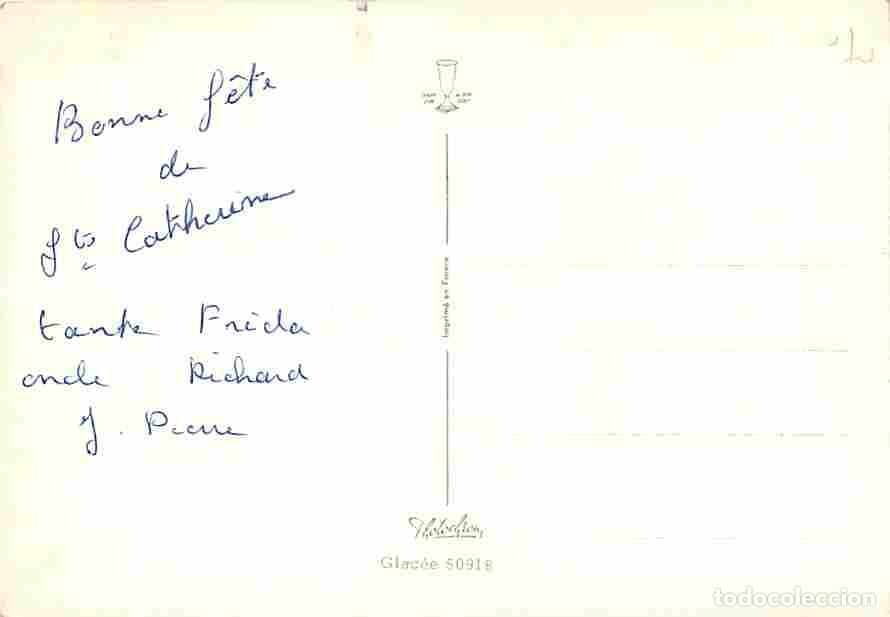 Bonne fête
de
Ste Catherine
tante Frida
oncle Richard
J. Pierre
Imprimé en France
Photochrom
Glacée 50918
todocoleccion